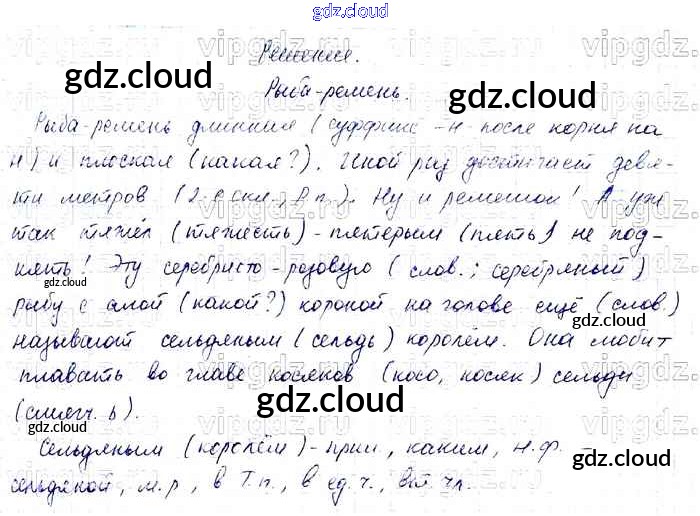 gdz.cloud
Решение.
Рыба-ремень.
Рыба-ремень длинная (суффикс -н- после корня на
н) и плоская (какая?). Иной раз достигает девя-
ти метров (2-е скл., Р.п.). Ну и ремешок! А уж
так тяжёл (тяжесть) - пятерым (пять) не под-
нять! Эту серебристо-розовую (слов.; серебряный)
рыбу с алой (какой?) короной на голове ещё (слов.)
называют сельдяным (сельдь) королём. Она любит
плавать во главе косяков (косо, косяк) сельди
(смягч. ь).
Сельдяным (королём) - прил., каким, н.ф. -
сельдяной, м.р., в Т.п., в ед.ч.,
gdz.cloud
gdz.cloud
gdz.cloud
gdz.cloud
gdz.cloud
gdz.cloud
gdz.cloud
gdz.cloud